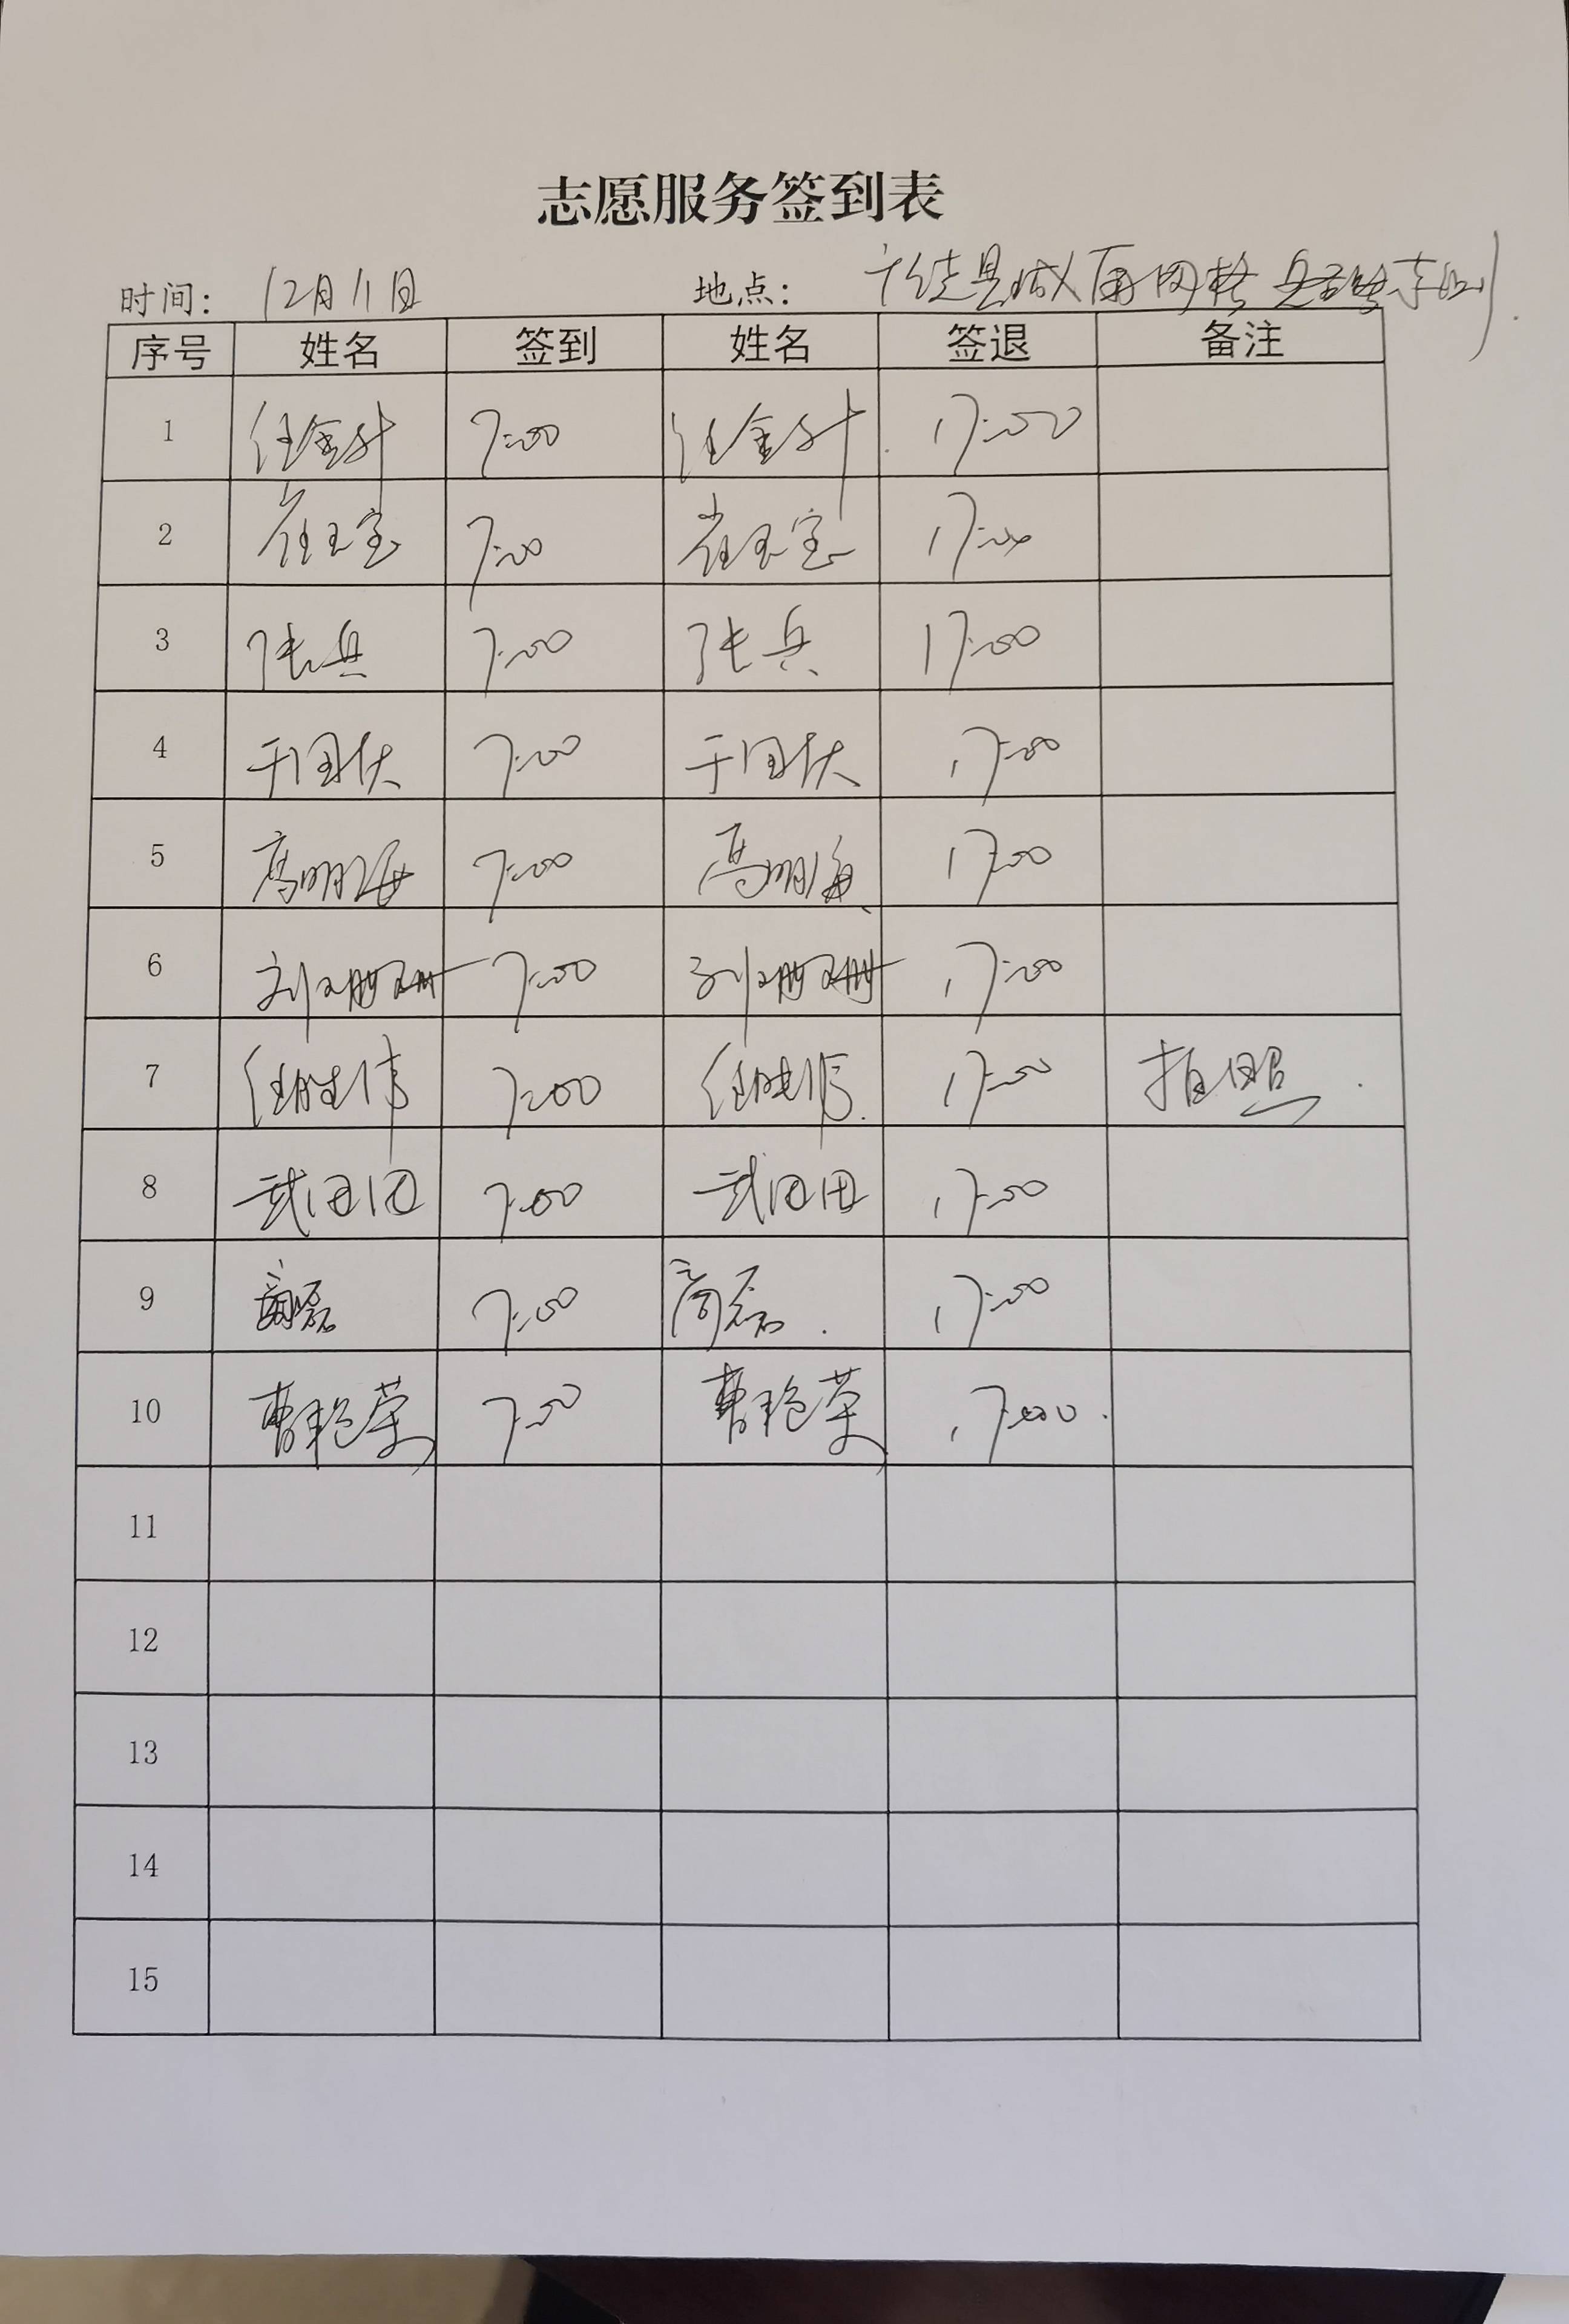 志愿服务签到表
时间: 12月11日 地点:
序号 姓名 签到 姓名 签退 备注
1 7:00 17:00
2 崔玉宝 7:00 崔玉宝 17:00
3 张兵 7:00 张兵 17:00
4 于国伏 7:00 于国伏 17:00
5 高明海 7:00 高明海 17:00
6 刘珊珊 7:00 刘珊珊 17:00
7 任胜伟 7:00 任胜伟 17:00 拍照
8 武团团 7:00 武团团 17:00
9 高磊 7:00 高磊 17:00
10 曹艳荣 7:00 曹艳荣 17:00
11
12
13
14
15